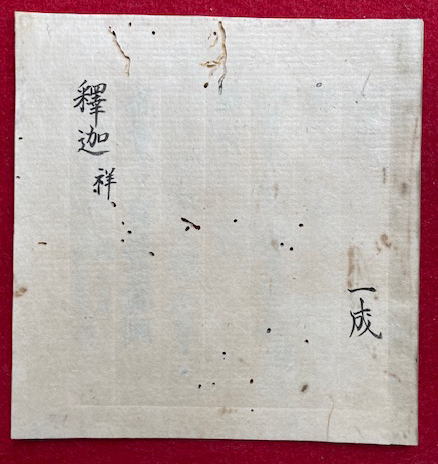 一成
釋迦祥、